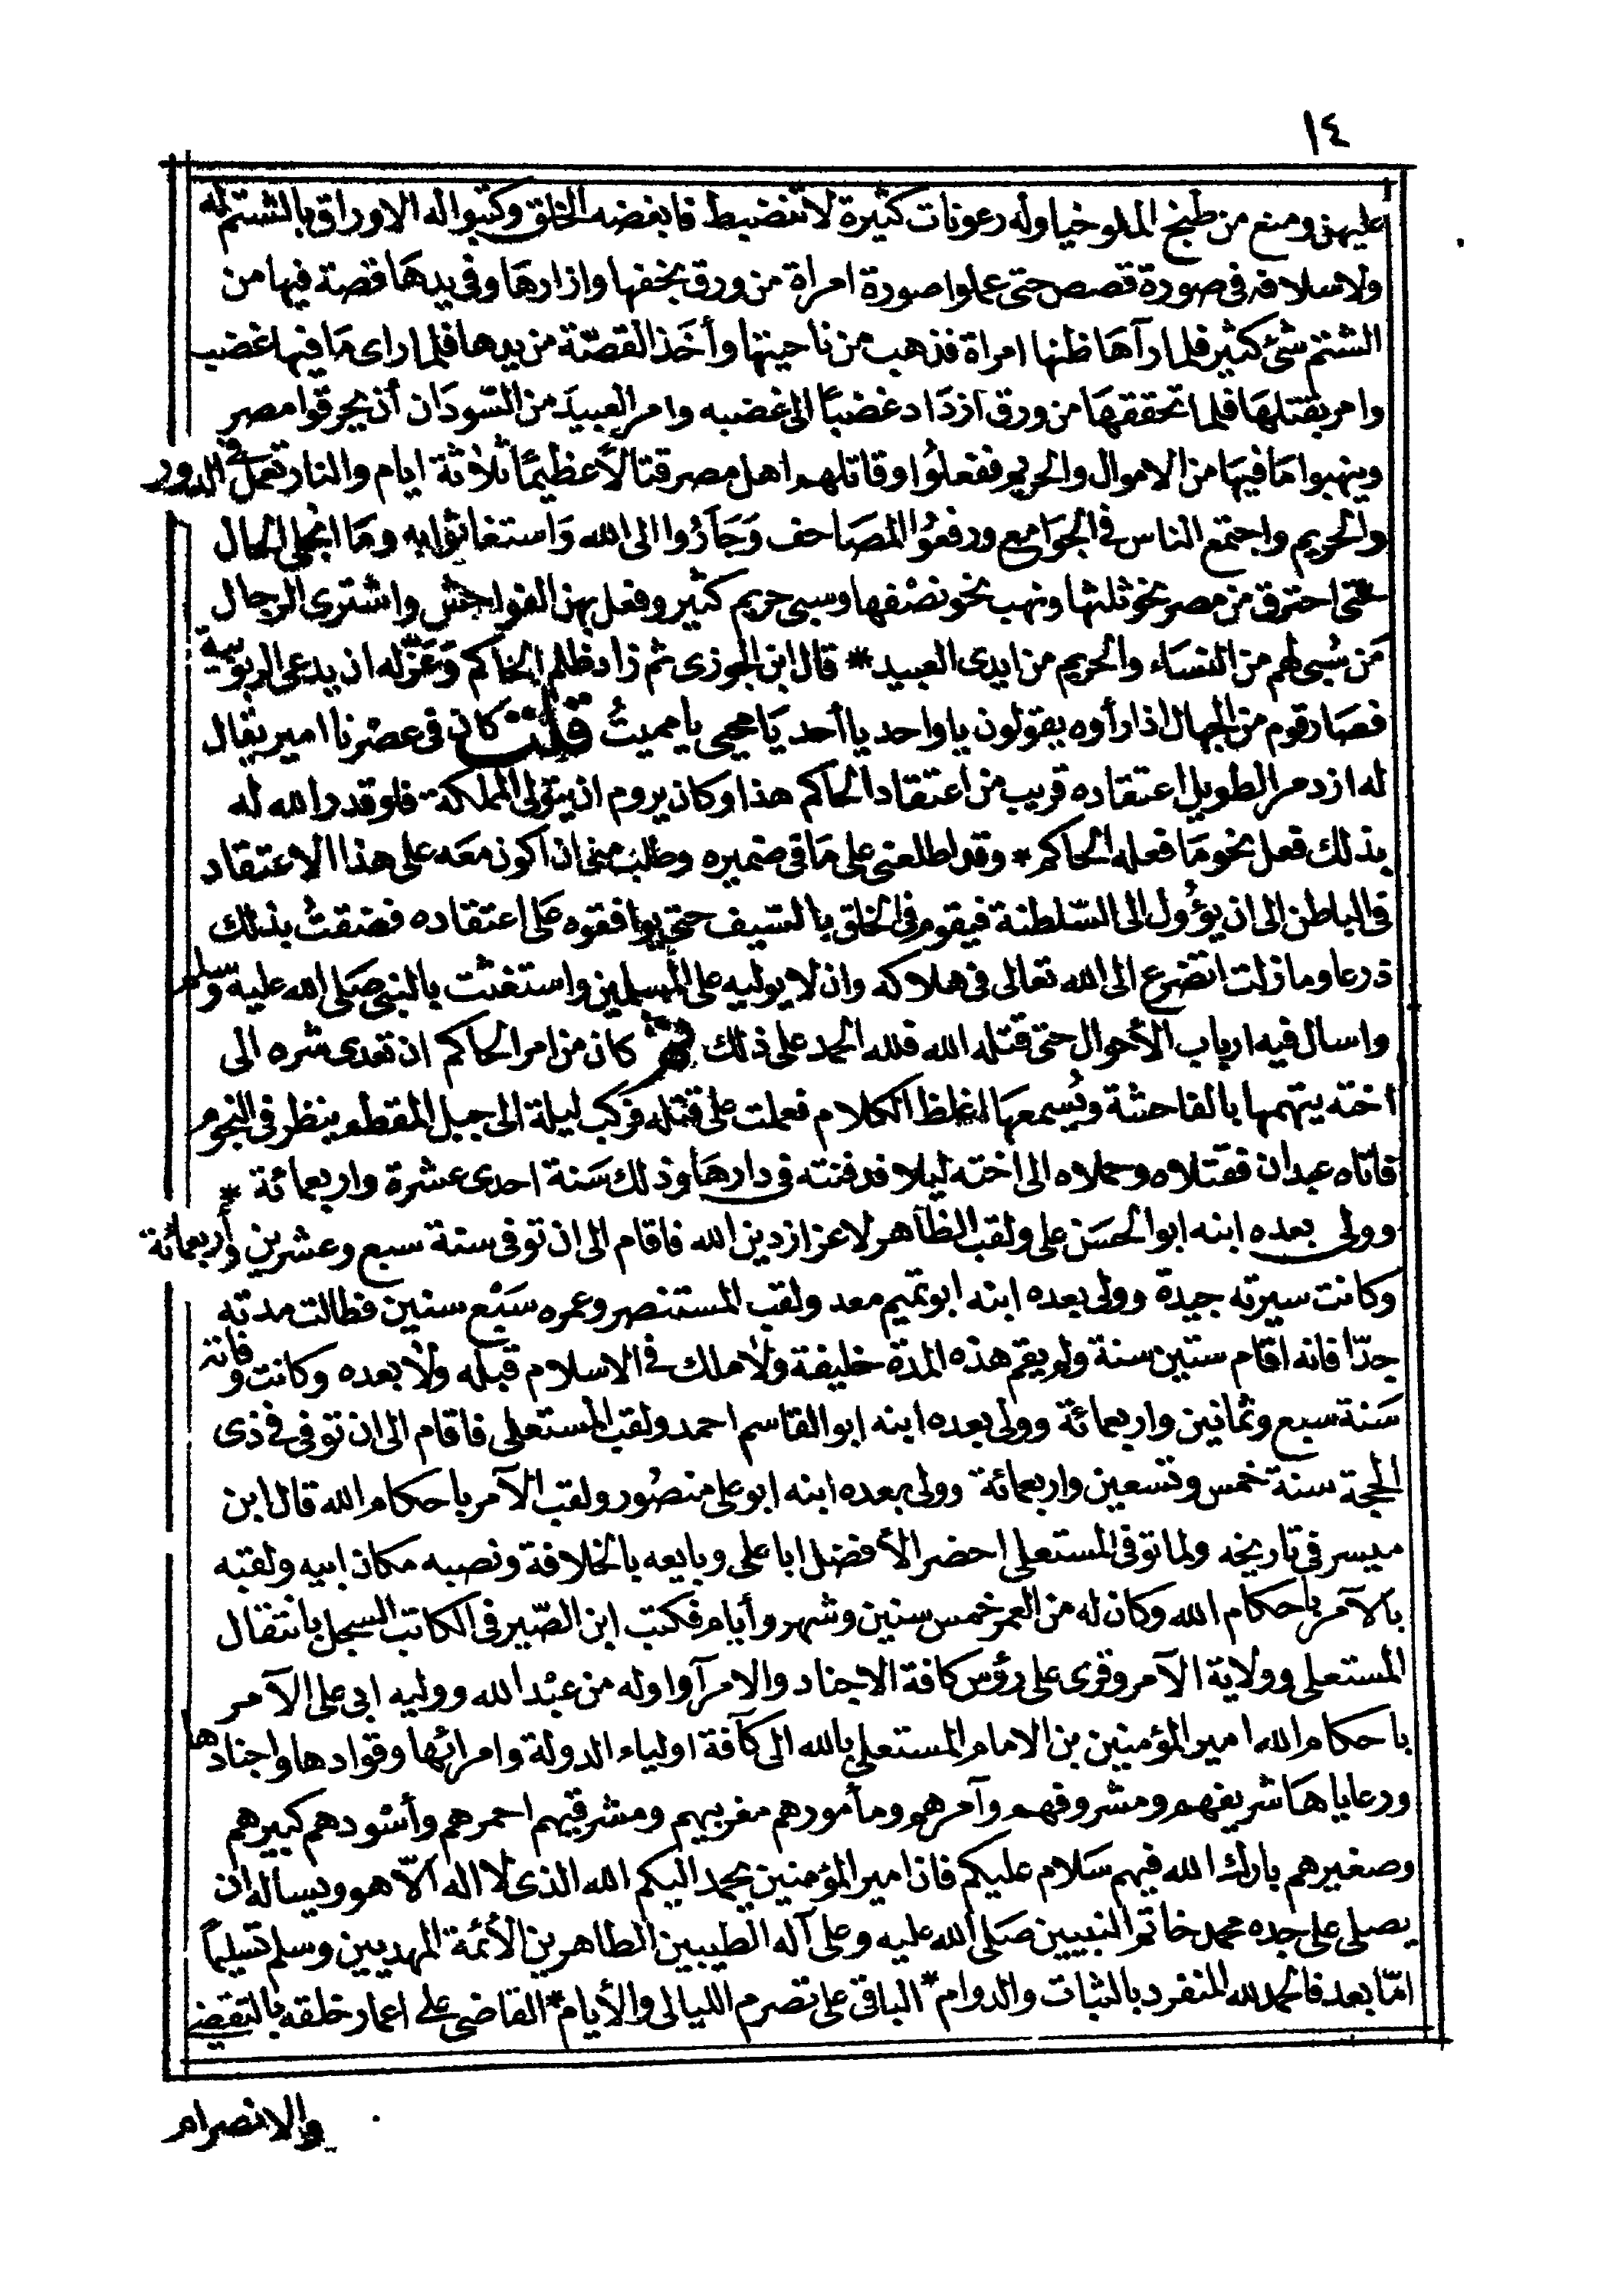 ١٤
عليهن ومنع من طبخ الملوخيا وله رعونات كثيرة لا تنضبط فابغضه الخلق وكتبوا له الاوراق بالشتم له
ولاسلافه فى صورة قصص حتى عملوا صورة امراة من ورق بخفها وازارها وفى يدها قصة فيها من
الشتم شئ كثير فلما رآها ظنها امراة فذهب من ناحيتها وأخذ القصّة من يدها فلما راى ما فيها غضب
وامر بقتلها فلما تحققها من ورق ازداد غضبًا الى غضبه وامر العبيد من السّودان أن يحرقوا مصر
وينهبوا ما فيها من الاموال والحريم ففعلوا وقاتلهم اهل مصر قتالاً عظيمًا ثلاثة ايام والنار تعمل فى الدور
والحريم واجتمع الناس فى الجوامع ورفعوا المصاحف وجأروا الى الله واستغاثوا به وما انجلى الحال
حتى احترق من مصر نحو ثلثها ونهب نحو نصفها وسبى حريم كثير وفعل بهن الفواحش واشترى الرجال
من سُبى لهم من النساء والحريم من ايدى العبيد * قال ابن الجوزى ثم زاد ظلم الحاكم وعنّ له ان يدعى الربوبية
فصار قوم من الجهال اذا رأوه يقولون يا واحد يا أحد يا محيى يا مميتُ قلت كان فى عصرنا امير يقال
له ازدمر الطويل اعتقاده قريب من اعتقاد الحاكم هذا وكان يروم ان يتولى المملكة فلو قدر الله له
بذلك فعل نحو ما فعله الحاكم * وقد اطلعنى على ما فى ضميره وطلب منى ان اكون معه على هذا الاعتقاد
فى الباطن الى ان يؤول الى السّلطنة فيقوم فى الخلق بالسّيف حتى يوافقوه على اعتقاده فضقتُ بذلك
ذرعا وما زلت اتضرع الى الله تعالى فى هلاكه وان لا يوليه على المسلمين واستغثت بالنبى صلى الله عليه وسلم
واسال فيه ارباب الأحوال حتى قتله الله فلله الحمد على ذلك ثم كان من امر الحاكم ان تعدى شره الى
اخته يتهمها بالفاحشة ويُسمعها اغلظ الكلام فعملت على قتله فركب ليلة الى جبل المقطم ينظر فى النجوم
فاتاه عبدان فقتلاه وحملاه الى اخته ليلا فدفنته فى دارها وذلك سنة احدى عشرة واربعمائة *
وولى بعده ابنه ابو الحسن على ولقب الظاهر لاعزاز دين الله فاقام الى ان توفى سنة سبع وعشرين وأربعمائة
وكانت سيرته جيدة وولى بعده ابنه ابو تميم معد ولقب المستنصر وعمره سبع سنين فطالت مدته
جدّا فانه اقام ستين سنة ولم يقم هذه المدة خليفة ولا ملك فى الاسلام قبله ولا بعده وكانت وفاته
سنة سبع وثمانين واربعمائة وولى بعده ابنه ابو القاسم احمد ولقب المستعلى فاقام الى ان توفى فى ذى
الحجة سنة خمس وتسعين واربعمائة وولى بعده ابنه ابو على منصُور ولقب الآمر باحكام الله قال ابن
ميسر فى تاريخه ولما توفى المستعلى احضر الأفضل ابا على وبايعه بالخلافة ونصبه مكان ابيه ولقبه
بالآمر باحكام الله وكان له من العمر خمس سنين وشهر وأيام فكتب ابن الصّيرفى الكاتب السجل بانتقال
المستعلى وولاية الآمر وقرى على رؤس كافة الاجناد والامرآ واوله من عبْد الله ووليه ابى على الآمر
باحكام الله امير المؤمنين بن الامام المستعلى بالله الى كآفة اولياء الدولة وامرائها وقوادها واجنادها
ورعاياها شريفهم ومشروفهم وآمرهم ومأمورهم مغربيهم ومشرقيهم احمرهم وأسْودهم كبيرهم
وصغيرهم بارك الله فيهم سلام عليكم فان امير المؤمنين يحمد اليكم الله الذى لا اله الّا هو ويساله ان
يصلى على جده محمد خاتم النبيين صلى الله عليه وعلى آله الطيبين الطاهرين الأئمة المهديين وسلم تسليماً
امّا بعد فالحمد لله المنفرد بالثبات والدوام * الباقى على تصرم الليالى والأيام * القاضى على اعمار خلقه بالتقضى
والانصرام